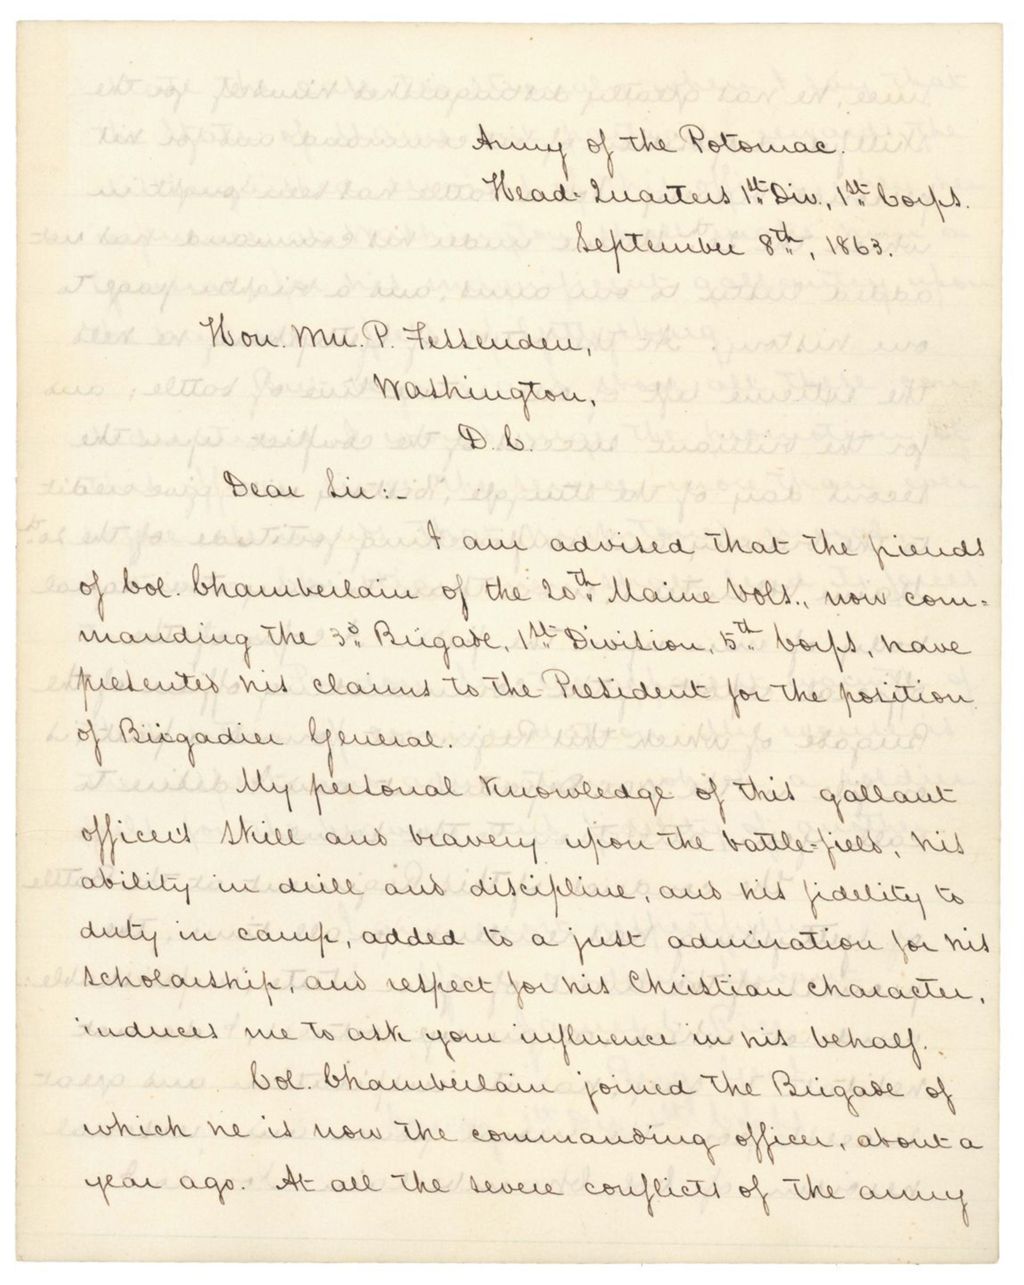 Army of the Potomac.
Head-Quarters 1st Div., 1st Corps.
September 8th, 1863.
Hon. Wm. P. Fessenden,
Washington,
D. C.
Dear Sir:-
I am advised that the friends
of Col. Chamberlain of the 20th Maine Vols., now com-
manding the 3d Brigade, 1st Division, 5th Corps, have
presented his claims to the President for the position
of Brigadier General.
My personal knowledge of this gallant
officer's skill and bravery upon the battle-field, his
ability in drill and discipline, and his fidelity to
duty in camp, added to a just admiration for his
scholarship, and respect for his Christian character,
induces me to ask your influence in his behalf.
Col. Chamberlain joined the Brigade of
which he is now the commanding officer, about a
year ago. At all the severe conflicts of the army